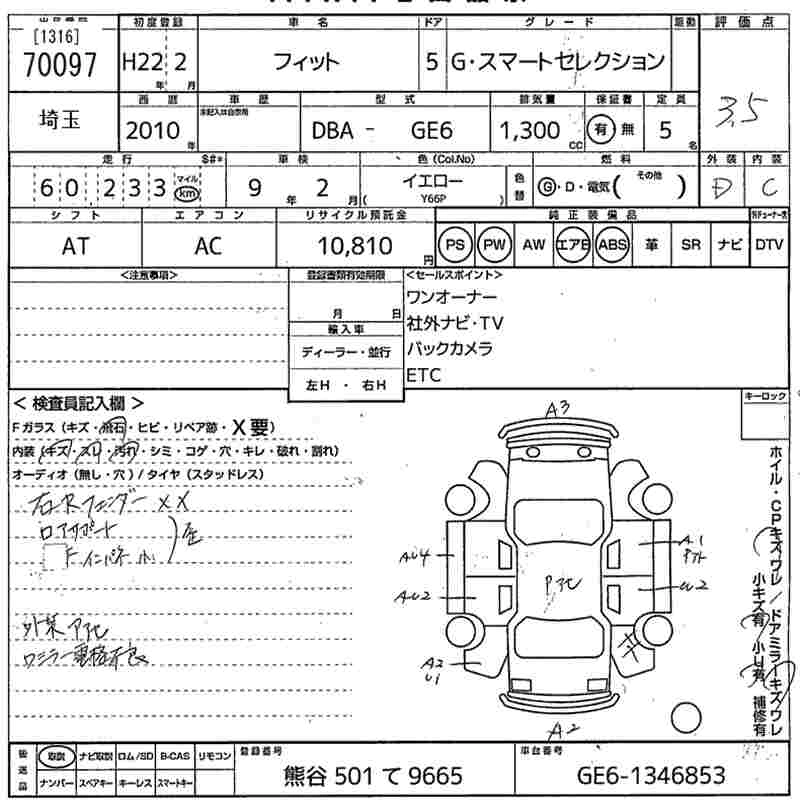 [1316]
70097
初度登録
車名
ドア
グレード
駆動
評価点
H22 2
年 月
フィット
5
G・スマートセレクション
3.5
埼玉
西暦
車歴
未記入は自家用
型式
排気量
保証書
定員
2010
年
DBA - GE6
1,300
CC
有 無
5
名
走行
S#*
車検
色(Col.No)
色替
燃料
外装
内装
60233
マイル
km
9 年 2 月
イエロー
( Y66P )
G・D・電気( その他 )
D
C
シフト
エアコン
リサイクル預託金
純正装備品
AT
AC
10,810
円
PS PW AW エアB ABS 革 SR ナビ DTV
<注意事項>
登録書類有効期限
月 日
輸入車
ディーラー・並行
左H ・ 右H
<セールスポイント>
ワンオーナー
社外ナビ・TV
バックカメラ
ETC
キーロック
< 検査員記入欄 >
Fガラス (キズ・飛石・ヒビ・リペア跡・X要)
内装 (キズ・スレ・汚れ・シミ・コゲ・穴・キレ・破れ・割れ)
オーディオ (無し・穴) / タイヤ (スタッドレス)
右Rフェンダー XX
ロアサポート
Fインパネ 小
歪
外装 アアセ
ロミラー電格不良
A3
AU4
AU2
A2
U1
A1
Pアト
U2
Pアセ
A2
ホイル・CPキズワレ/ドアミラーキズワレ
小キズ有 小U有 補修有
後送品
取説 ナビ取説 ロム/SD B-CAS リモコン
ナンバー スペアキー キーレス スマートキー
登録番号
熊谷 501 て 9665
車台番号
GE6-1346853